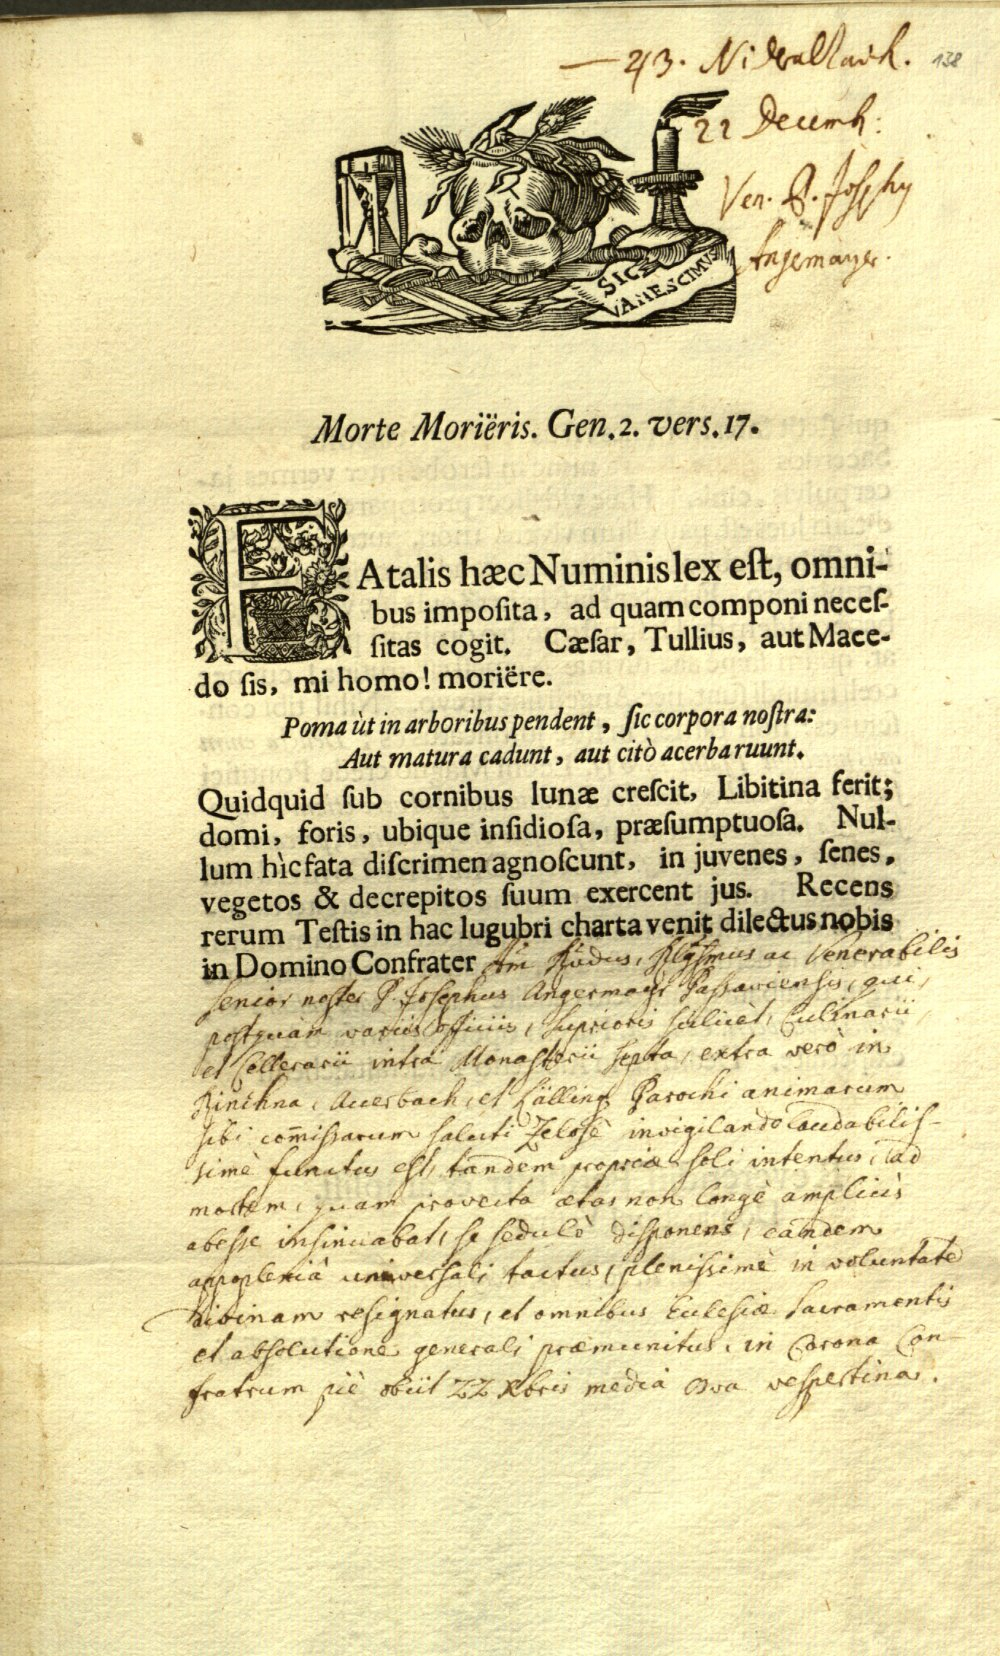 — 43. Nideraltaich.
138
22 Decemb:
Ven. P. Josephy
Angermayr.
SIC
VANESCIMUS
Morte Moriëris. Gen. 2. vers. 17.
FAtalis hæc Numinis lex eſt, omni-
bus impoſita, ad quam componi neceſ-
ſitas cogit. Cæſar, Tullius, aut Mace-
do ſis, mi homo! moriëre.
Poma ùt in arboribus pendent, ſic corpora noſtra:
Aut matura cadunt, aut citò acerba ruunt.
Quidquid ſub cornibus lunæ creſcit, Libitina ferit;
domi, foris, ubique inſidioſa, præſumptuoſa. Nul-
lum hìc fata diſcrimen agnoſcunt, in juvenes, ſenes,
vegetos & decrepitos ſuum exercent jus. Recens
rerum Teſtis in hac lugubri charta venit dilectus nobis
in Domino Confrater Rdus, ac Venerabilis
Senior noster P. Josephus Angermayr Passaviensis, qui,
postquam variis officiis, Suprioris scilicèt, Culinarii,
et Cellerarii intra Monasterii septa, extra verò in
Kirchna, Auerbach, et Lälling Parochi animarum
sibi com̄issarum saluti Zelosè invigilando laudabilis-
simè functus est, tandem propriæ soli intentus, ad
mortem, quam provecta ætas non longè ampliùs
abesse insinuabat, se sedulò disponens, eandem
appoplexiâ universali tactus, plenissimè in voluntatē
divinam resignatus, et omnibus Ecclesiæ Sacramentis
et absolutione generali præmunitus, in Corona Con-
fratrum piè obiit 22 Xbris mediâ 8va vespertina.